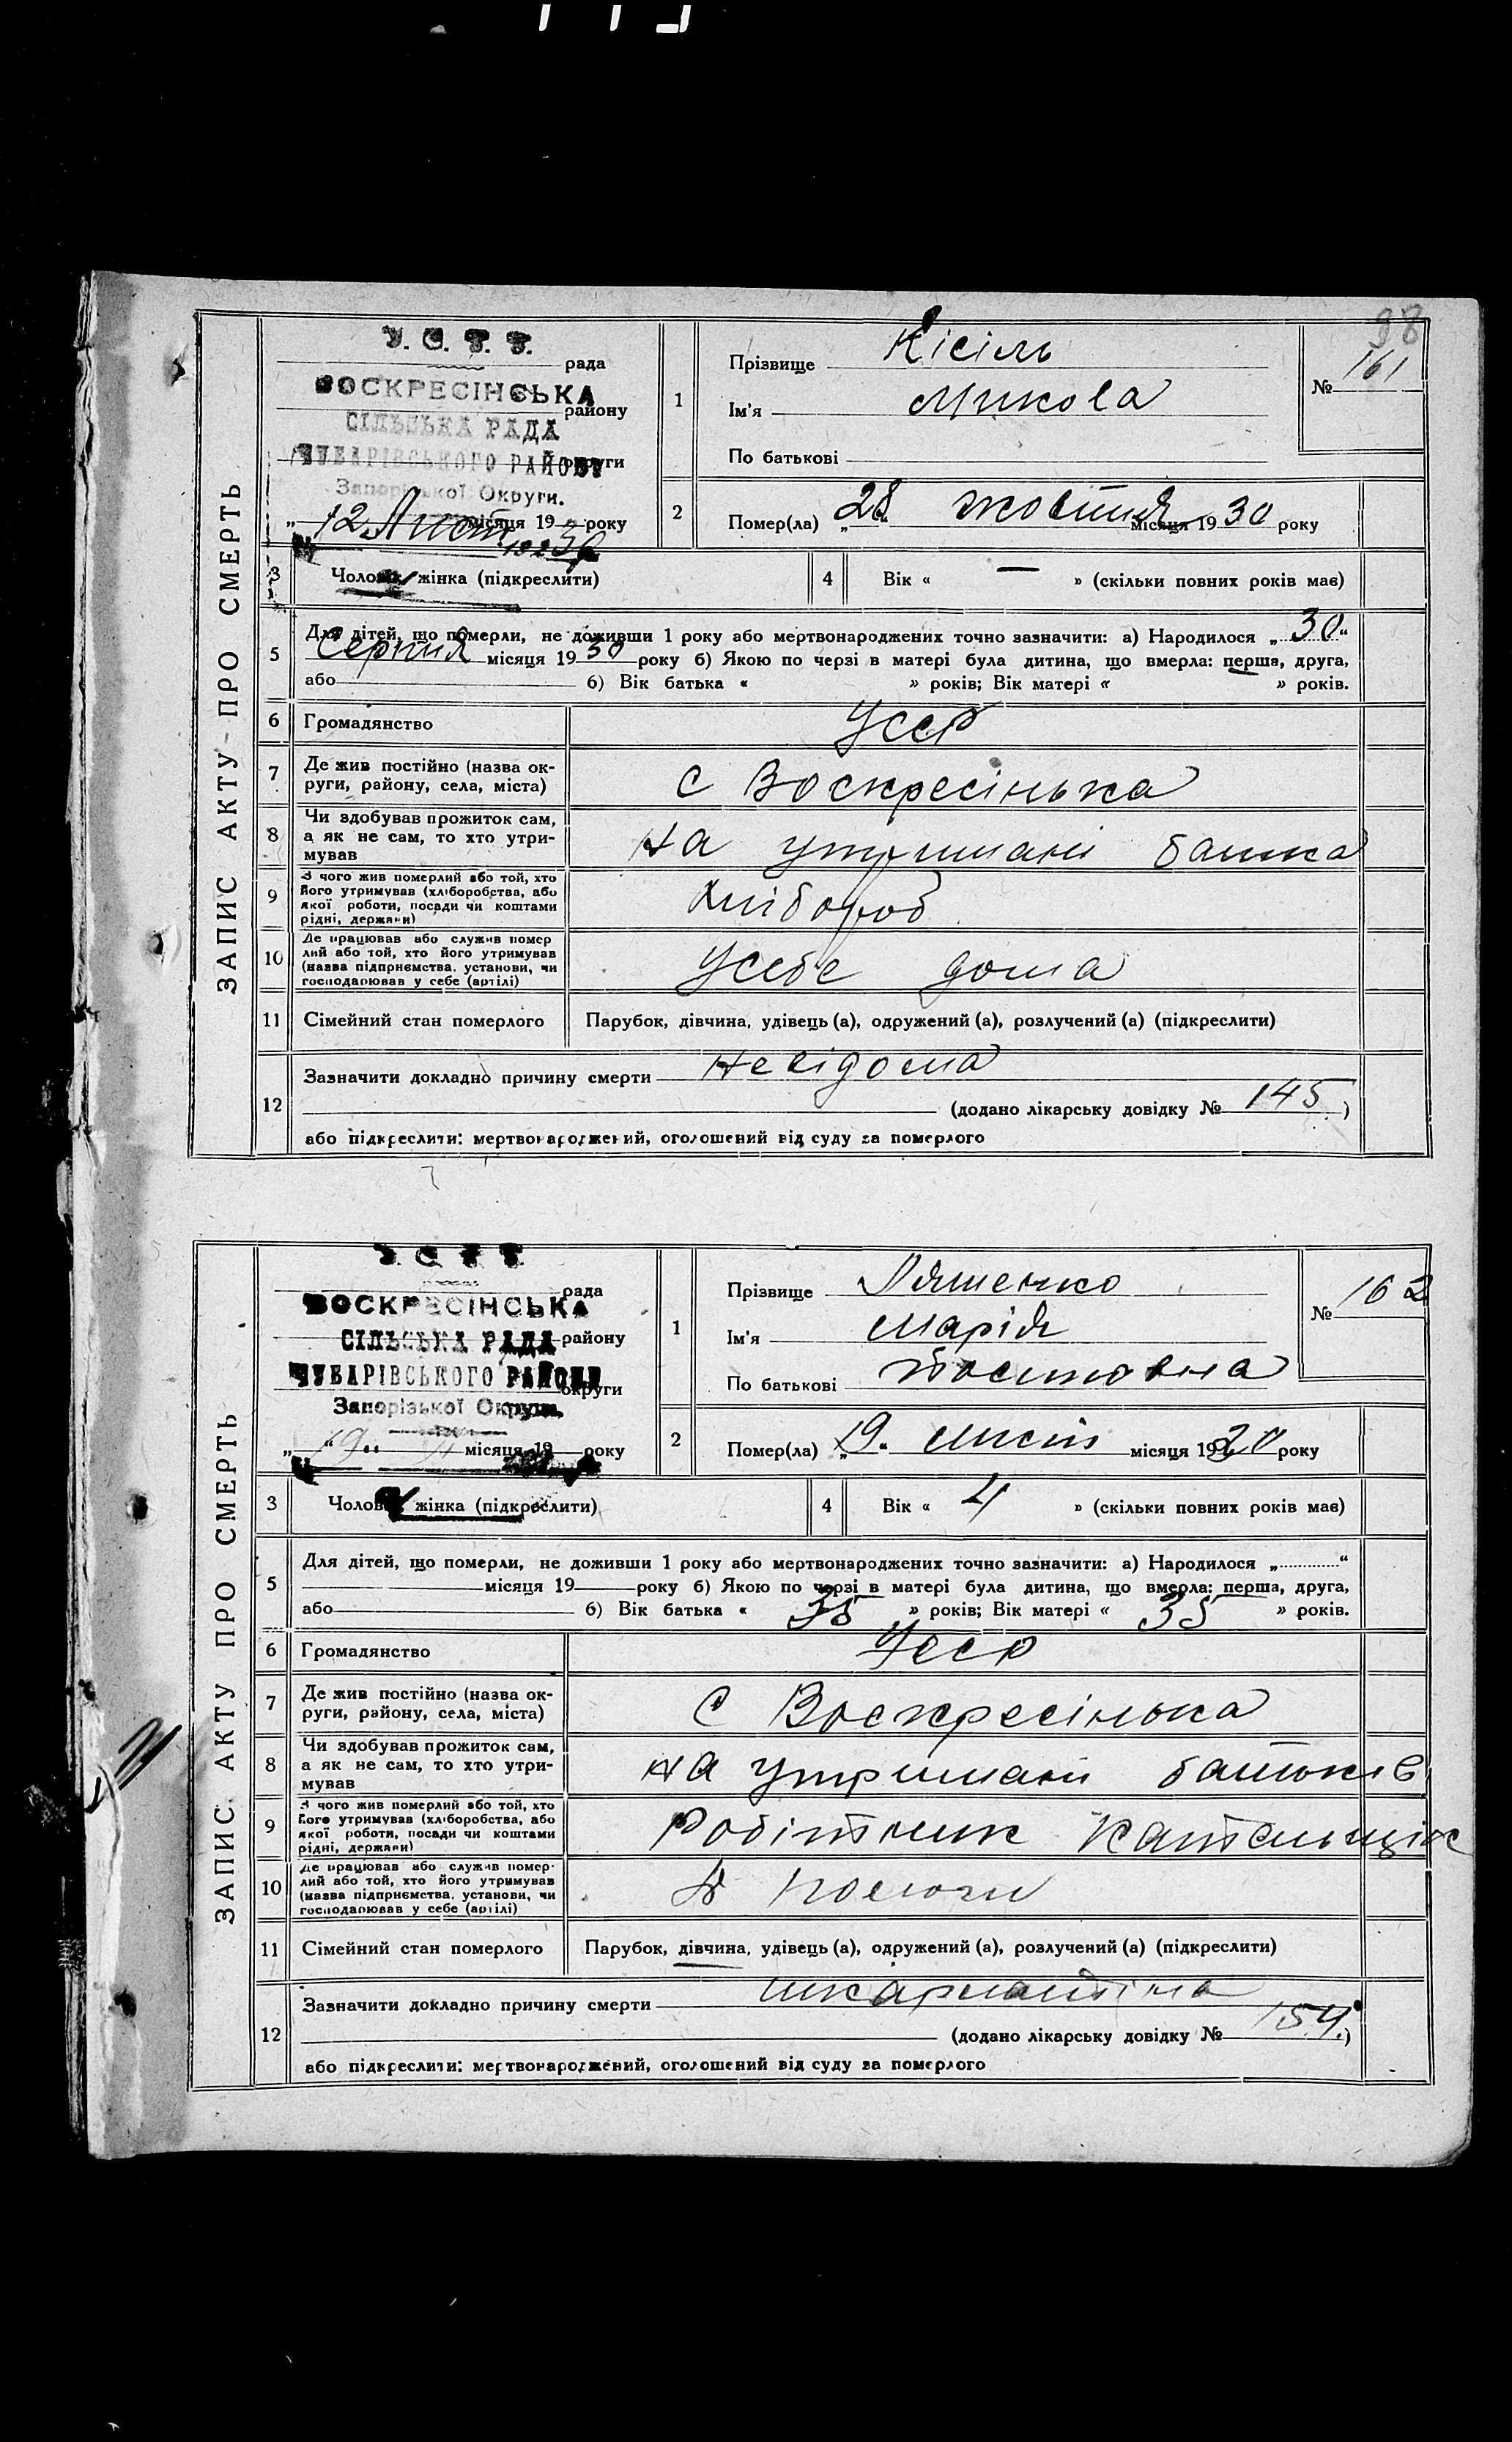 98
ЗАПИС АКТУ ПРО СМЕРТЬ
У. С. Р. Р.
рада
ВОСКРЕСІНСЬКА
району
СІЛЬСЬКА РАДА
ЧУБАРІВСЬКОГО РАЙОНУ
округи
Запорізької Округи.
„ 12 Лист місяця 19 року
1930
1
Прізвище Кісіль
№ 161
Ім'я Микола
По батькові
2
Помер(ла) „28“ жовтня місяця 1930 року
3 Чоловік жінка (підкреслити)
4 Вік « — » (скільки повних років має)
5
Для дітей, що померли, не доживши 1 року або мертвонароджених точно зазначити: а) Народилося „30“
Серпня місяця 1930 року б) Якою по черзі в матері була дитина, що вмерла: перша, друга,
або б) Вік батька « » років; Вік матері « » років.
6 Громадянство УССР
7 Де жив постійно (назва ок-
руги, району, села, міста)
с Воскресінька
8 Чи здобував прожиток сам,
а як не сам, то хто утри-
мував
на утримані батька
9 З чого жив померлий або той, хто
його утримував (хліборобства, або
якої роботи, посади чи коштами
рідні, держави)
хлібороб
10 Де працював або служив помер
лий або той, хто його утримував
(назва підприємства, установи, чи
господарював у себе (артілі)
усебе дома
11 Сімейний стан померлого Парубок, дівчина, удівець (а), одружений (а), розлучений (а) (підкреслити)
12
Зазначити докладно причину смерти Невідома
(додано лікарську довідку № 145)
або підкреслити: мертвонароджений, оголошений від суду за померлого
ЗАПИС АКТУ ПРО СМЕРТЬ
У. С. Р. Р.
рада
ВОСКРЕСІНСЬКА
СІЛЬСЬКА РАДА району
ЧУБАРІВСЬКОГО РАЙОНУ
округи
Запорізької Округи.
„19“ місяця 19 року
1
Прізвище Ляшенко
№ 162
Ім'я Марія
По батькові
2
Помер(ла) „19“ лист місяця 1930 року
3 Чоловік жінка (підкреслити)
4 Вік « 4 » (скільки повних років має)
5
Для дітей, що померли, не доживши 1 року або мертвонароджених точно зазначити: а) Народилося „ “
місяця 19 року б) Якою по черзі в матері була дитина, що вмерла: перша, друга,
або б) Вік батька « 35 » років; Вік матері « 35 » років.
6 Громадянство УССР
7 Де жив постійно (назва ок-
руги, району, села, міста)
с Воскресінька
8 Чи здобував прожиток сам,
а як не сам, то хто утри-
мував
на утримані батьків
9 З чого жив померлий або той, хто
його утримував (хліборобства, або
якої роботи, посади чи коштами
рідні, держави)
Робітник Катальщік
10 Де працював або служив помер-
лий або той, хто його утримував
(назва підприємства, установи, чи
господарював у себе (артілі)
11 Сімейний стан померлого Парубок, дівчина, удівець (а), одружений (а), розлучений (а) (підкреслити)
12
Зазначити докладно причину смерти шкарлатіна
(додано лікарську довідку № 154)
або підкреслити: мертвонароджений, оголошений від суду за померлого